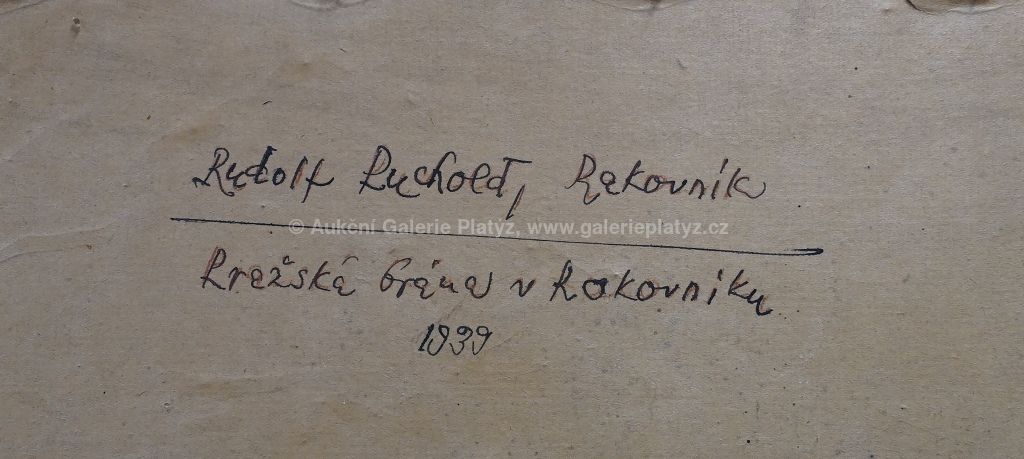 Rudolf Puchold, Rakovník
© Aukční Galerie Platýz, www.galerieplatyz.cz
Pražská brána v Rakovníku
1939